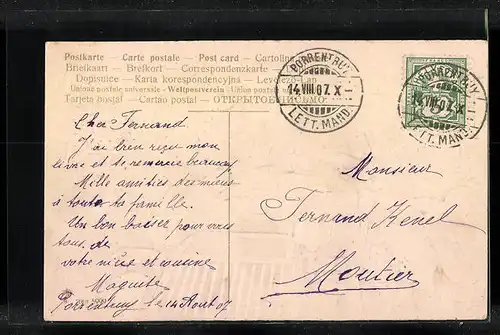 Postkarte — Carte postale — Post card — Cartolina
Briefkaart — Brefkort — Correspondenzkarte —
Dopisnice — Karta korespondencyjna — Levelező-Lap
Unione postale universale - Weltpostverein - Union postale
Tarjeta postal — Cartao postal — ОТКРЫТОЕ ПИСЬМО
PORRENTRUY
14.VIII.07.X-
LETT.MAND.
PORRENTRUY
14.VIII.07.X-
LETT.MAND.
Cher Fernand.
J'ai bien reçu mon
livre et te remercie beaucoup
Mille amitiés des miens
à toute ta famille.
Un bon baiser pour vous
tous, de
votre nièce et cousine
Porrentruy le 14 Août 07
Monsieur
Fernand Kenel
Moutier